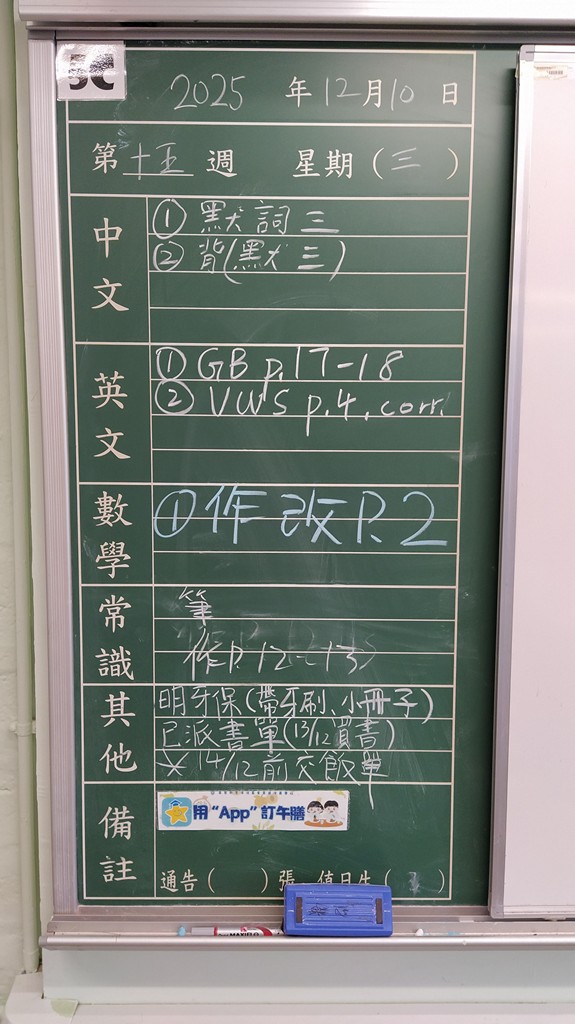 5C
2025 年 12 月 10 日
第 十五 週 星期（三）
中文
① 默詞三
② 背(默三)
英文
① GB p.17-18
② VWS p.4. corr.
數學
① 作改P.2
常識
筆
作P.12-13
其他
明牙保(帶牙刷、小冊子)
已派書單(13/12買書)
※14/12前交飯單
備註
用“App”訂午膳
通告（ ）張 值日生（ ）